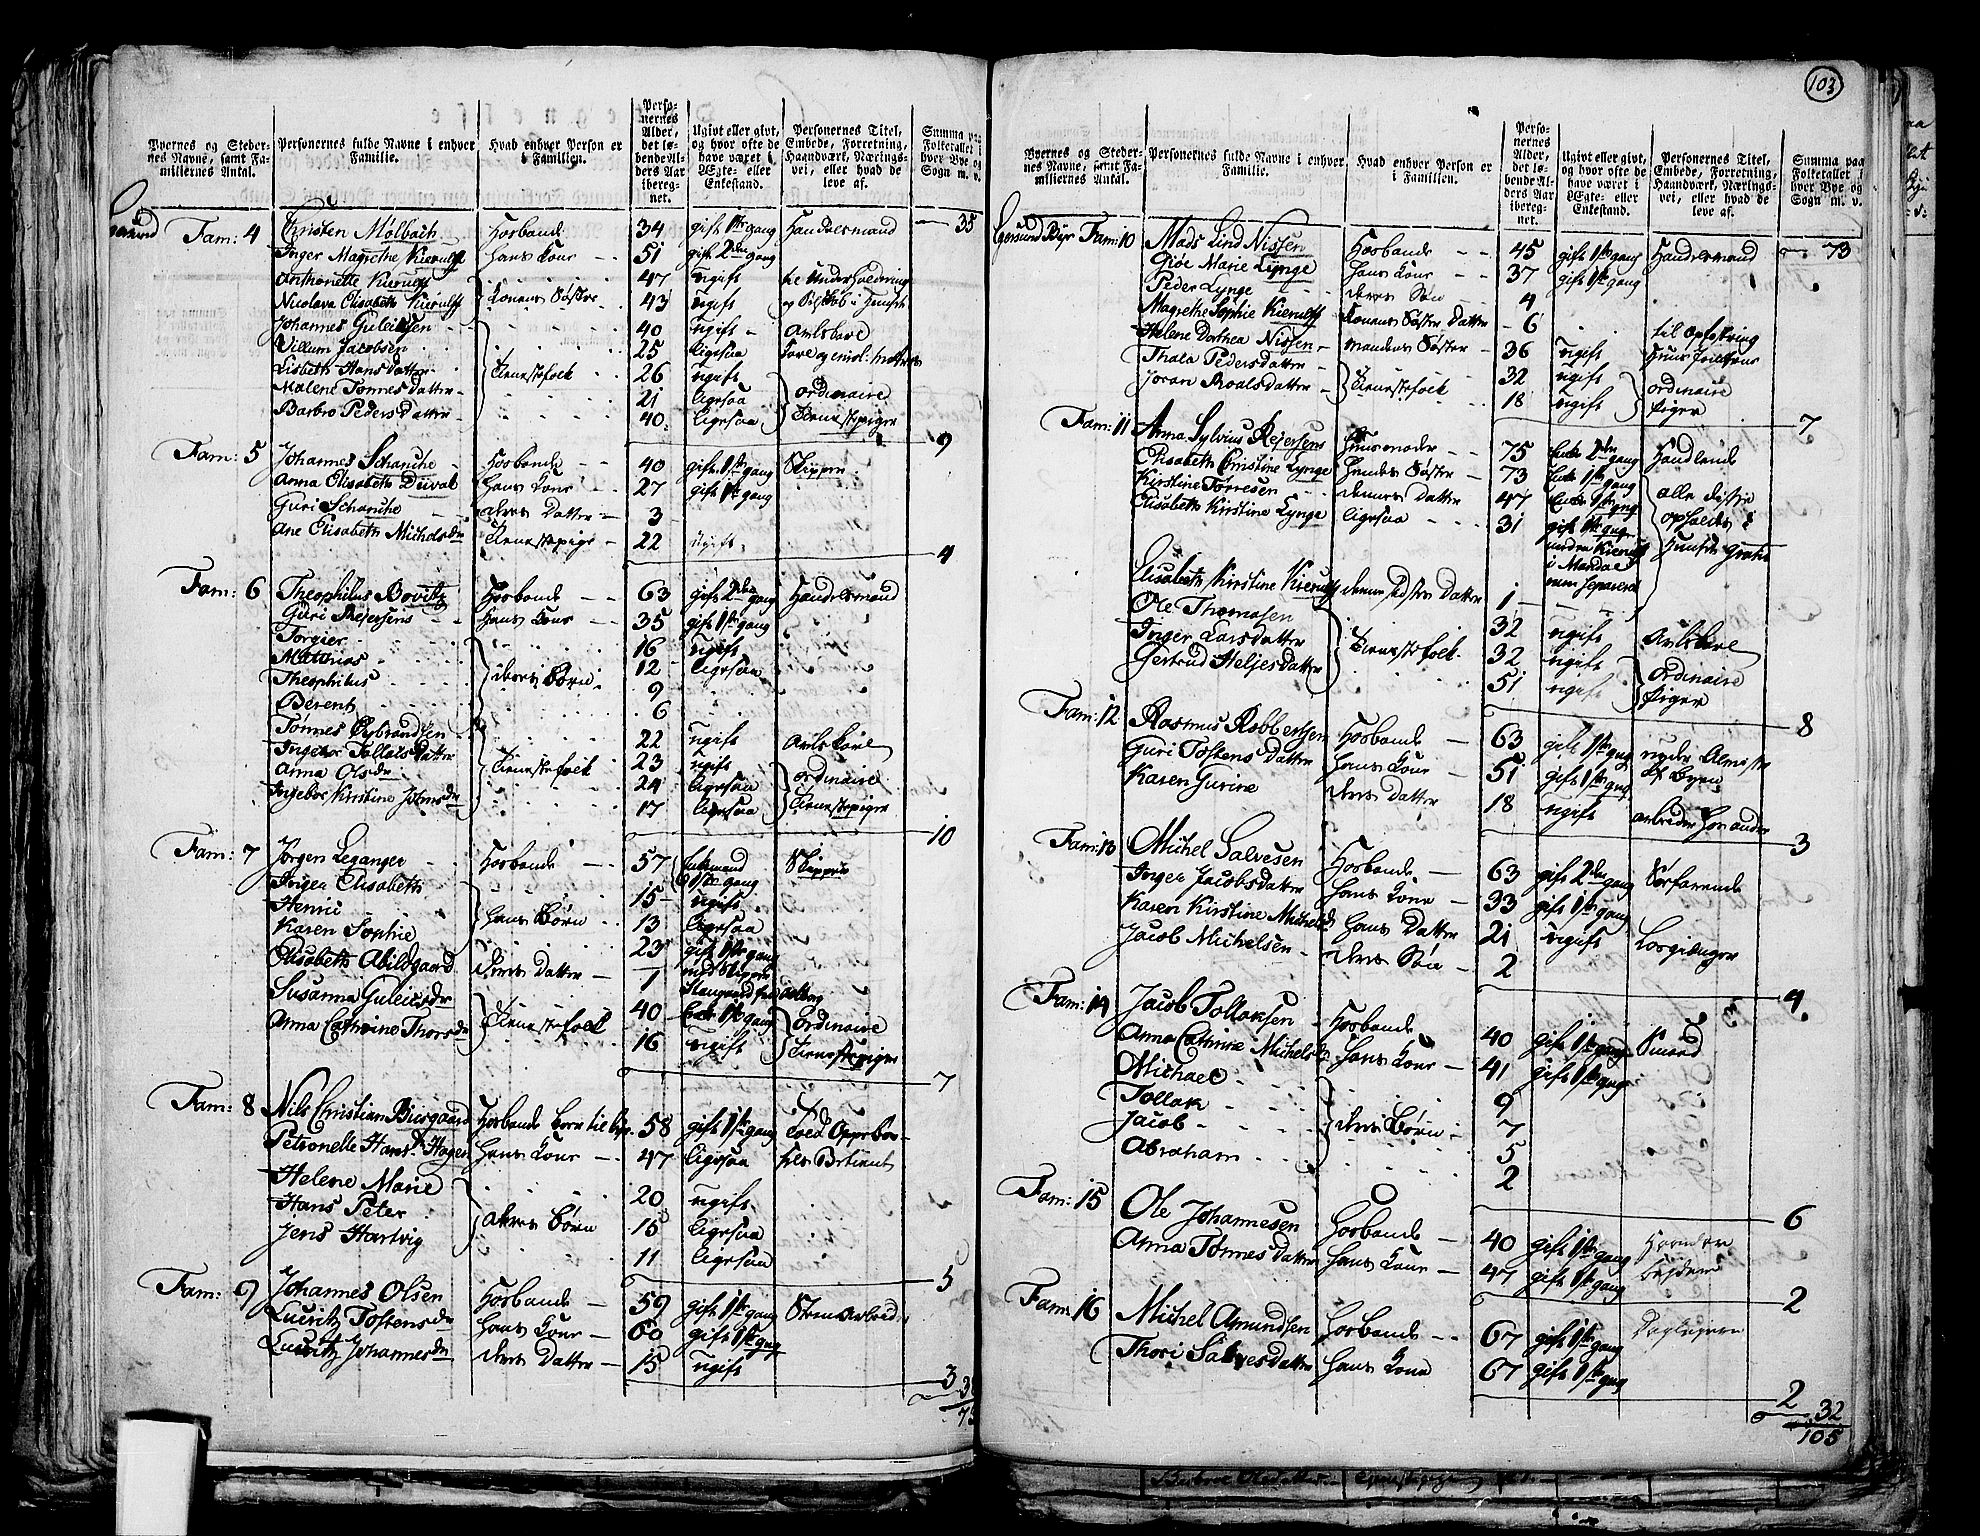 103
Byernes og Stedernes Navne, samt Familiernes Antal.
Personernes fulde Navne i enhver Familie.
Hvad enhver Person er i Familien.
Personernes Alder, det løbende Alders Aar iberegnet.
Ugivt eller givt, og hvor ofte de have været i Ægte- eller Enkestand.
Personernes Titel, Embede, Forretning, Haandværk, Næringsvei, eller hvad de leve af.
Summa paa Folketallet i hver Bye og Sogn m. v.
35
Fam: 4 Christen Mölbach Hosbonde 34 gift 1ste gang Handelsmand
Inger Magrethe Kierulff hans Kone 51 gift 2den gang
Anthonette Kierulff 47 ugift
Nicolava Elisabeth Kierulff Konens Søstre 43 ugift
Johannes Guleichsen 40 ugift Avlskarl
Villum Jacobsen 25 ligesaa
Lisbeth Hansdatter Tienestefolk 26 ugift
Malene Tønnes Datter 21 ligesaa ordinaire
Barbro Peders Datter 40 ligesaa Tienestepiger
9
Fam: 5 Johannes Schanche Hosbonde 40 gift 1ste gang Skipper
Anna Elisabeth Duval hans Kone 27 gift 1ste gang
Guri Schanche deres Datter 3
Ane Elisabeth Michelsdr Tienestepige 22 Ugift
4
Fam: 6 Theophilus Bovitz Hosbonde 63 gift 2den gang Handelsmand
Guri Reiersens hans Kone 35 gift 1ste gang
Torgier 16 ugift
Mathias 12 ligesaa
Theophilus deres Børn 9
Berent 6
Tönnes Øybrandsen 22 ugift Avls Karl
Ingebor Tollaksdatter 23 ugift
Anna Olsdr Tienestefolk 24 ligesaa ordinaire
Ingebor Kirstine Johnsdr 17 ligesaa Tienestepiger
10
Fam: 7 Jørgen Leganger Hosbonde 57 Enkemand 1ste gang Skipper
Inger Elisabeth 15 ugift
Henric hans Børn 13 ligesaa
Karen Sophie 23 gift 1ste gang
Elisabeth Abildgaard deres Datter 1 med Skipper
Susanna Guleicsdr 40 Enke 1ste gang ordinaire
Anna Cathrine Thorsdr Tienestefolk 16 ugift Tienestepiger
7
Fam: 8 Nils Christian Busgaard Hosbonde 58 gift 1ste gang
Petronelle Hansdr Hagen hans Kone 47 ligesaa
Helene Marie 20 ugift
Hans Peter deres Børn 15 ligesaa
Jens Hartvig 11 ligesaa
5
Fam: 9 Johannes Olsen Hosbonde 59 gift 1ste gang
Lucritz Tostensdr hans Kone 60 gift 1ste gang
Lucritz Johannesdr deres Datter 15 ugift
3
Byernes og Stedernes Navne, samt Familiernes Antal.
Personernes fulde Navne i enhver Familie.
Hvad enhver Person er i Familien.
Personernes Alder, det løbende Alders Aar iberegnet.
Ugivt eller givt, og hvor ofte de have været i Ægte- eller Enkestand.
Personernes Titel, Embede, Forretning, Haandværk, Næringsvei, eller hvad de leve af.
Summa paa Folketallet i hver Bye og Sogn m. v.
73
Egersund Bye Fam: 10 Mads Lind Nissen Hosbonde 45 gift 1ste gang Handelsmand
Giøe Marie Lynge hans Kone 37 gift 1ste gang
Peder Lynge deres Søn 4
Magrethe Sophie Kierulff Konens Søster Datter 6 til Opfostring
Helene Dorthea Nissen mandens Søster 36 ugift
Thala Pedersdatter 32 ugift ordinaire
Joran Roalsdatter Tienestefolk 18 ugift Piger
7
Fam: 11 Anna Sylvius Reiersens Huusmoder 75 Enke 2den gang Handlende
Elisabeth Christine Lynge hendes Søster 73 Enke 1ste gang
Kirstine Torresen dennes Datter 47 Enke 1ste gang alle disse
Elisabeth Kirstine Lynge ligesaa 31 gift 1ste gang opholdes i
Huuset gratis
Elisabeth Kirstine Kierulff 1
Ole Thomasen 32 ugift Avlskarl
Inger Larsdatter Tienestefolk 32 ugift ordinaire
Gertrud Heljesdatter 51 ugift Piger
8
Fam: 12 Rasmus Robbertsen Hosbonde 63 gift 1ste gang nyder Almisse
Guri Tostens Datter hans Kone 51 gift 1ste gang af Byen
Karen Gurine deres Datter 18 ugift arbeider hos andre
3
Fam: 13 Michel Salvesen Hosbonde 63 gift 2den gang Søefarende
Inger Jacobsdatter hans Kone 33 gift 1ste gang
Karen Kirstine Michelsdr hans Datter 21 ugift
Jacob Michelsen deres Søn 2
4
Fam: 14 Jacob Tollaksen Hosbonde 40 gift 1ste gang Smed
Anna Cathrine Michelsdr hans Kone 41 gift 1ste gang
Michael 9
Tollak 7
Jacob deres Børn 5
Abraham 2
6
Fam: 15 Ole Johannesen Hosbonde 40 gift 1ste gang
Anna Tønnes Datter hans Kone 47 gift 1ste gang
2
Fam: 16 Michel Amundsen Hosbonde 67 gift 1ste gang Daglejere
Thori Salvesdatter hans Kone 67 gift 1ste gang
2
32
105